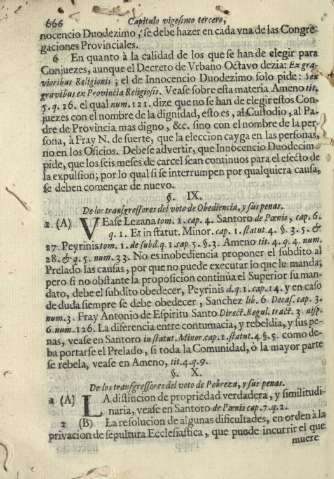 666 Capitulo vigesimo tercero,
nocencio Duodezimo, se debe hazer en cada vna de las Congre-
gaciones Provinciales.
6 En quanto à la calidad de los que se han de elegir para
Conjuezes, aunque el Decreto de Urbano Octavo dezia: Ex gra-
vioribus Religionis; el de Innocencio Duodezimo solo pide: Sex
gravibus ex Provincia Religiosis. Vease sobre esta materia Ameno tit.
5. q. 26. el qual num. 121. dize que no se han de elegir estos Con-
juezes con el nombre de la dignidad, esto es, al Custodio, al Pa-
dre de Provincia mas digno, &c. sino con el nombre de la per-
sona, à Fray N. de suerte, que la eleccion cayga en las personas,
no en los Oficios. Debese advertir, que Innocencio Duodecim
pide, que los seis meses de carcel sean continuos para el efecto de
la expulsion; por lo qual si se interrumpen por qualquiera causa,
se deben començar de nuevo.
§. IX.
De los transgressores del voto de Obediencia, y sus penas.
2. (A) VEase Lezana tom. 2. cap. 4. Santoro de Pœnis, cap. 6.
q. 1. Et in statut. Minor. cap. 1. statut 4. §. 3. 5. &
27. Peyrinis tom. 1. de subd. q. 1. cap. 5. §. 3. Ameno tit. 4. q. 4. num.
28. & q. 5. num. 33. No es inobediencia proponer el subdito al
Prelado las causas, por que no puede executar lo que le manda;
pero si no obstante la proposicion continùa el Superior su man-
dato, debe el subdito obedecer, Peyrinis d. q. 1. cap. 14. y en caso
de duda siempre se debe obedecer, Sanchez lib. 6. Decal. cap. 3.
num. 3. Fray Antonio de Espiritu Santo Direct. Regul. tract. 3. disp.
6. num. 126. La diferencia entre contumacia, y rebeldia, y sus pe-
nas, vease en Santoro in statut. Minor. cap. 1. statut. 4. §. 5. como de-
ba portarse el Prelado, si toda la Comunidad, ò la mayor parte
se rebela, vease en Ameno, tit. 4. q. 9.
§. X.
De los transgressores del voto de Pobreza, y sus penas.
2 (A) LA distincion de propriedad verdadera, y similitudi-
naria, vease en Santoro de Pœnis cap. 7. q. 2.
2 (B) La resolucion de algunas dificultades, en orden à la
privacion de sepultura Ecclesiastica, que puede incurrir el que
muere